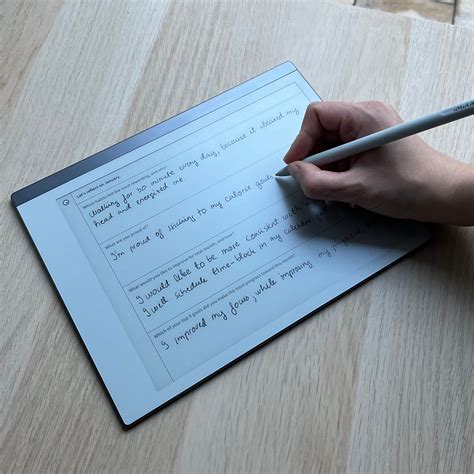 Let's reflect on January.
Which habits felt the most rewarding, and why?
Walking for 30 minute every day, because it cleared my
head and energized me.
What are you proud of?
I'm proud of sticking to my calorie goals
What would you like to improve for next month, and how?
I would like to be more consistent with
I will schedule time-block in my calendar
Which of your top 5 goals did you make the most progress toward this month?
I improved my focus, while improving my physical